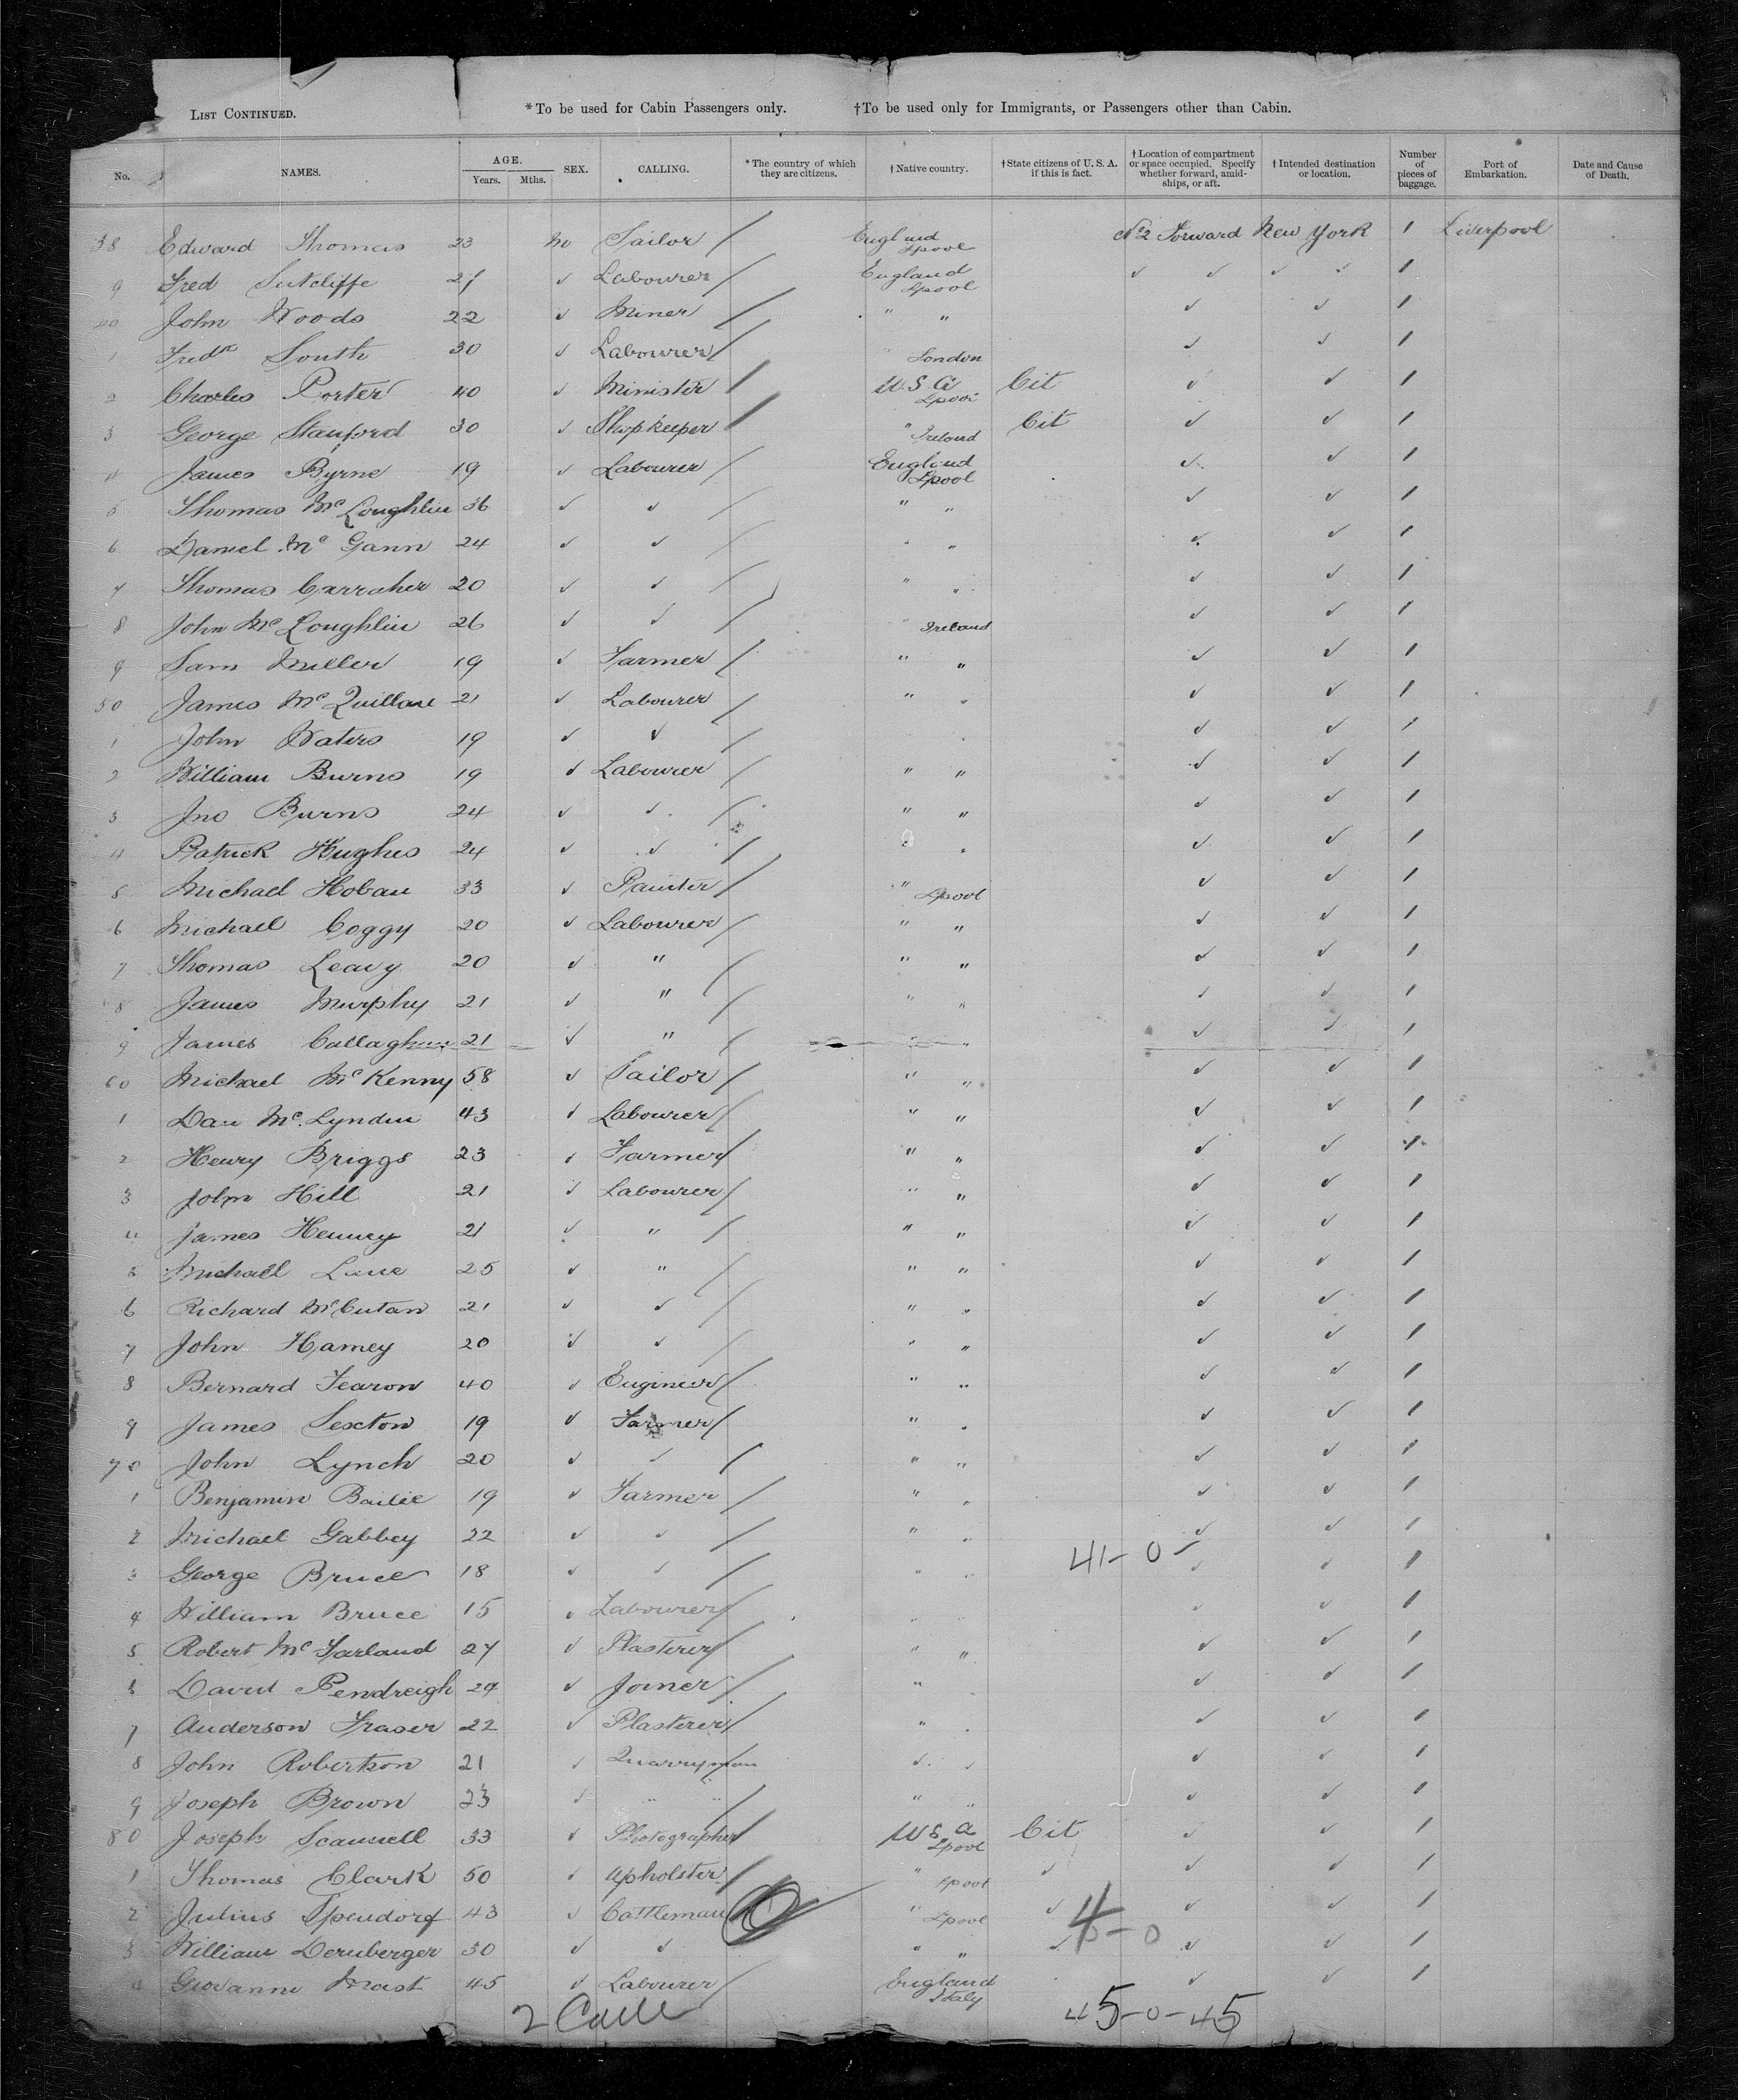 LIST CONTINUED. *To be used for Cabin Passengers only. †To be used only for Immigrants, or Passengers other than Cabin.
No. NAMES. AGE. Years. Mths. SEX. CALLING. *The country of which they are citizens. †Native country. †State citizens of U. S. A. if this is fact. †Location of compartment or space occupied. Specify whether forward, amidships, or aft. †Intended destination or location. Number of pieces of baggage. Port of Embarkation. Date and Cause of Death.
38 Edward Thomas 23 m Sailor / England Lpool No 2 Forward New York 1 Liverpool
9 Fred Sutcliffe 21 ✓ Labourer / England Lpool ✓ ✓ ✓ ✓ 1
40 John Woods 22 ✓ Miner / " " ✓ ✓ 1
1 Fredk South 30 ✓ Labourer / " London ✓ ✓ 1
2 Charles Porter 40 ✓ Minister / U.S.A Lpool Cit ✓ ✓ 1
3 George Stanford 30 ✓ Shopkeeper / " Ireland Cit ✓ ✓ 1
4 James Byrne 19 ✓ Labourer / England Lpool ✓ ✓ 1
5 Thomas McLoughlin 36 ✓ ✓ / " " ✓ ✓ 1
6 Daniel McGann 24 ✓ ✓ / " " ✓ ✓ 1
7 Thomas Carraher 20 ✓ ✓ / " " ✓ ✓ 1
8 John McLoughlin 26 ✓ ✓ / " Ireland ✓ ✓ 1
9 Sam Miller 19 ✓ Farmer / " " ✓ ✓ 1
50 James McQuillan 21 ✓ Labourer / " " ✓ ✓ 1
1 John Waters 19 ✓ ✓ / " ✓ ✓ 1
2 William Burns 19 ✓ Labourer / " " ✓ ✓ 1
3 Jno Burns 24 ✓ ✓ / " " ✓ ✓ 1
4 Patrick Hughes 24 ✓ ✓ / " " ✓ ✓ 1
5 Michael Hoban 33 ✓ Painter / " Lpool ✓ ✓ 1
6 Michael Coggy 20 ✓ Labourer / " " ✓ ✓ 1
7 Thomas Leavy 20 ✓ " / " " ✓ ✓ 1
8 James Murphy 21 ✓ " / " " ✓ ✓ 1
9 James Callaghan 21 ✓ " / " " ✓ ✓ 1
60 Michael McKenny 58 ✓ Tailor / " " ✓ ✓ 1
1 Dan McLynden 43 ✓ Labourer / " " ✓ ✓ 1
2 Henry Briggs 23 ✓ Farmer / " " ✓ ✓ 1
3 John Hill 21 ✓ Labourer / " " ✓ ✓ 1
4 James Henury 21 ✓ " / " " ✓ ✓ 1
5 Michael Lane 25 ✓ " / " " ✓ ✓ 1
6 Richard McCutan 21 ✓ ✓ / " " ✓ ✓ 1
7 John Hamey 20 ✓ ✓ / " " ✓ ✓ 1
8 Bernard Fearon 40 ✓ Engineer / " " ✓ ✓ 1
9 James Sexton 19 ✓ Farmer / " " ✓ ✓ 1
70 John Lynch 20 ✓ ✓ / " " ✓ ✓ 1
1 Benjamin Bailie 19 ✓ Farmer / " " ✓ ✓ 1
2 Michael Gabbey 22 ✓ ✓ / " " ✓ ✓ 1
3 George Bruce 18 ✓ ✓ / " " 41-0- ✓ ✓ 1
4 William Bruce 15 ✓ Labourer / " " ✓ ✓ 1
5 Robert McFarland 27 ✓ Plasterer / " " ✓ ✓ 1
6 David Pendreigh 27 ✓ Joiner / " ✓ ✓ 1
7 Anderson Fraser 22 ✓ Plasterer / " " ✓ ✓ 1
8 John Robertson 21 ✓ Quarryman / ✓ ✓ ✓ ✓ 1
9 Joseph Brown 23 ✓ " " / " " ✓ ✓ 1
80 Joseph Scannell 33 ✓ Photographer / U S A Lpool Cit ✓ ✓ 1
1 Thomas Clark 50 ✓ Upholster / " Lpool ✓ ✓ ✓ 1
2 Julius Spendorf 43 ✓ Cattleman " Lpool ✓ ✓ ✓ 1
3 William Dernberger 30 ✓ ✓ " " ✓ - 0 ✓ ✓ 1
4 Giovanni Mast 45 ✓ Labourer / England Italy ✓ ✓ 1
2 Cattle 45-0-45